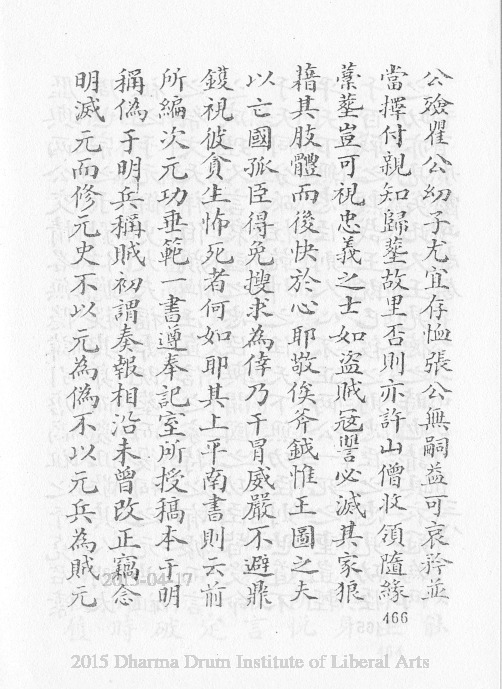 公殮瞿公幼子尤宜存恤張公無嗣益可哀矜並
當擇付親知歸塟故里否則亦許山僧收領隨緣
藁塟豈可視忠義之士如盗賊冦讐必滅其家狼
藉其肢體而後快於心耶敬俟斧鉞惟王圖之夫
以亡國孤臣得免搜求為倖乃干冒威嚴不避鼎
鑊視彼貪生怖死者何如耶其上平南書則云前
所編次元功垂範一書遵奉記室所授稿本于明
稱偽于明兵稱賊初謂奏報相沿未曾改正竊念
明滅元而修元史不以元為偽不以元兵為賊元
466
2015-04-17
2015 Dharma Drum Institute of Liberal Arts